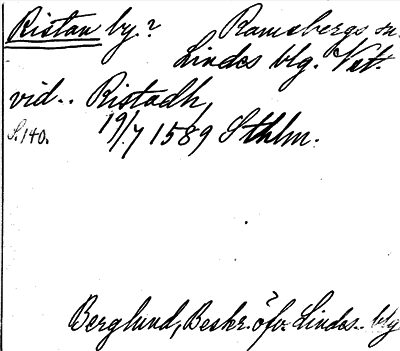 Ristan by.? Ramsbergs sn.
Lindes blg. Vstm.
vid.. Ristadh,
S. 140. 19/7 1589 Sthlm.
Berglund, Beskr. öfv. Lindes.. blg